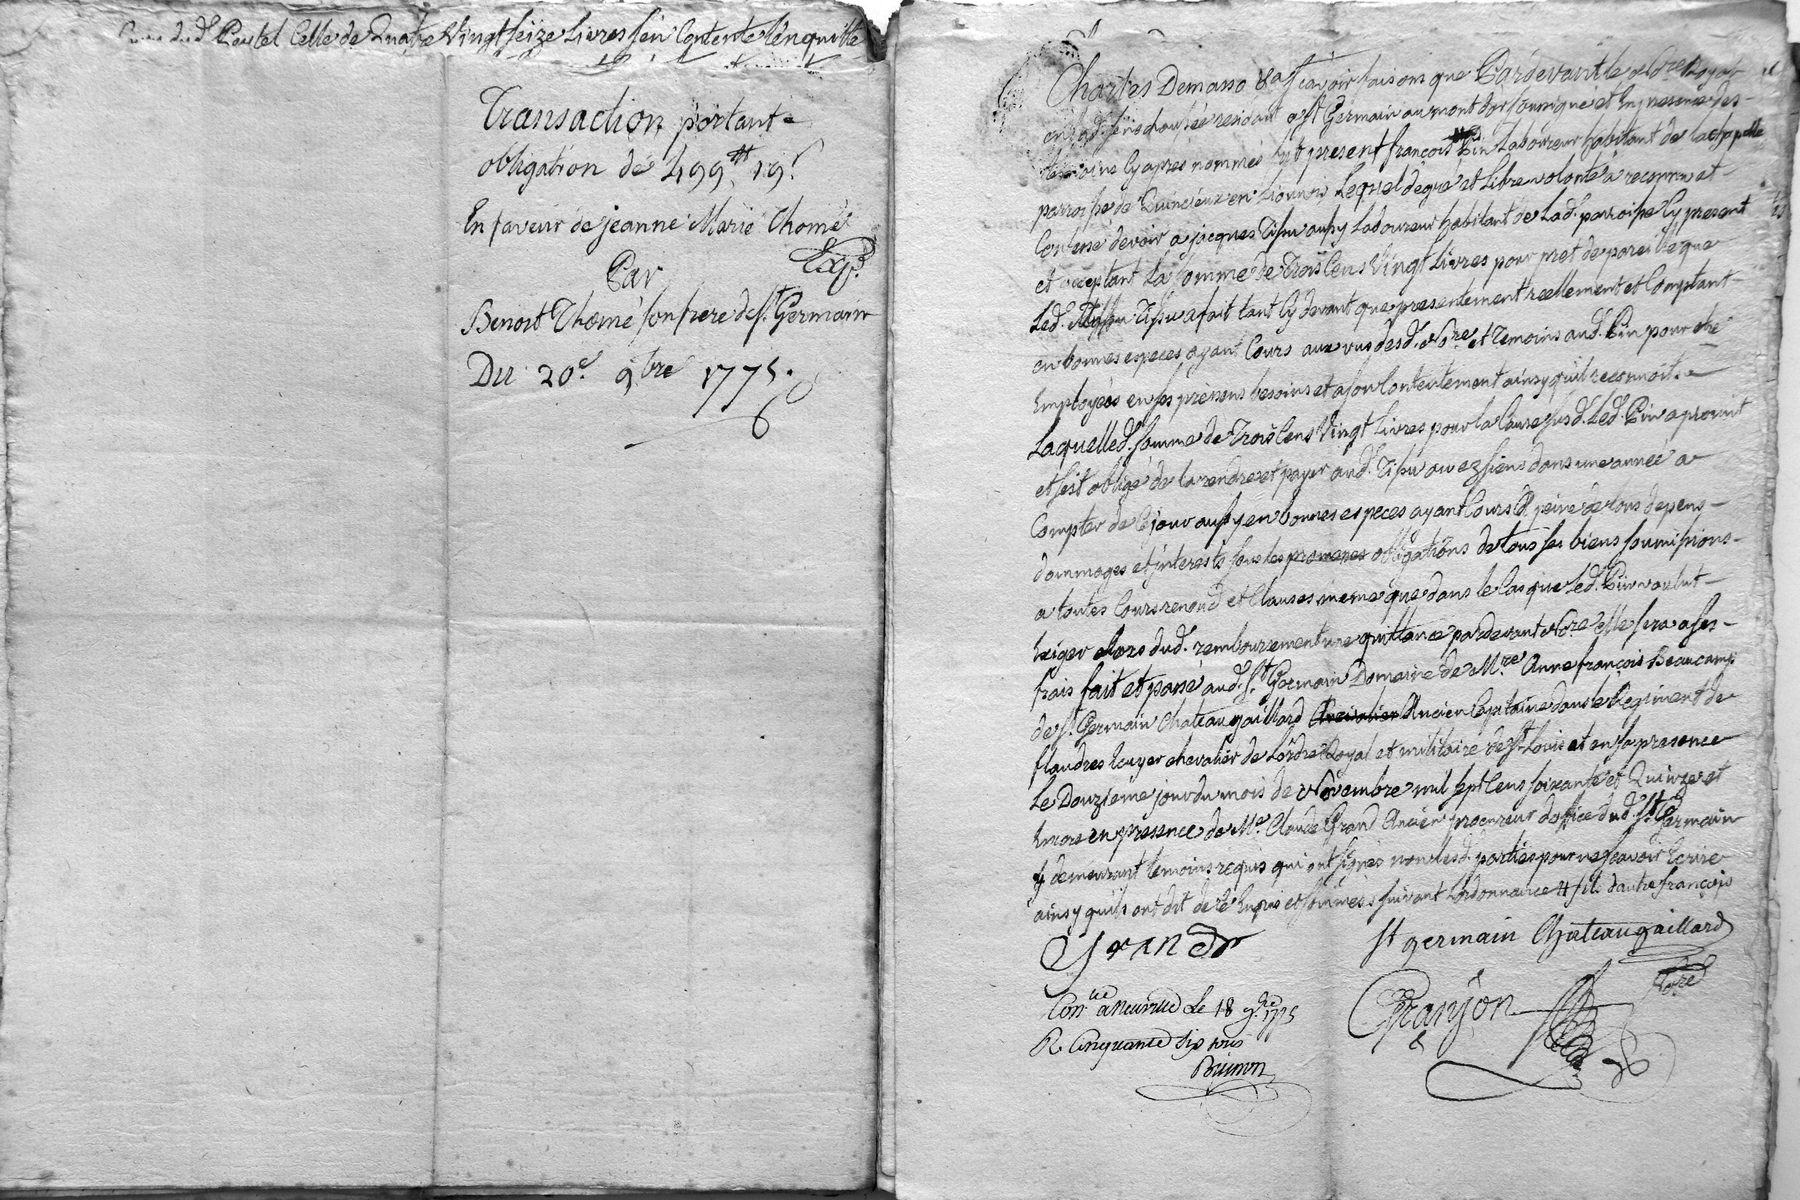 dud. Pestel Celle de Quatre Vingt seize Livres sen Contente len quitte
Transaction portant
obligation de 499# 19s
En faveur de jeanne Marie Thomé
Exp.
Par
Benoit Thomé son frere de St. Germain
Du 20e. 9bre 1775.
Charles Demasso &a Scavoir faisons que Pardevant le Nore Royal
resident a St Germain au mont dor soussigné et En presence des
temoins Cy apres nommés fut present françois Pin Laboureur habitant de la chapelle
parroisse de Quincieux en Lionnois Lequel de gré et Libre volonté a reconnu et
Confessé devoir a jacques Tissu aussy Laboureur habitant de Lad. parroisse Cy present
et acceptant La Somme de Trois Cens Vingt Livres pour pret de pareille que
Led. Tissu a fait tant Cy devant que presentement reellement et Comptant
en bonnes especes ayant Cours aux vus desd. Nore et Temoins aud. Pin pour etre
Employées en ses presens besoins et a son Contentement ainsy qu'il reconnoit
Laquelled. somme de Trois Cens Vingt Livres pour la Cause susd. Led. Pin a promit
et s'est obligé de la rendre et payer aud. Tissu ou ez siens dans une année a
Compter de Ce jour aussy en bonnes especes ayant Cours a peine de tous depens
dommages et interests sous les promesses obligations de tous ses biens soumissions
a toutes Cours renond. et Clauses meme que dans le Cas que Led. Pin voulut
Exiger Lors dud. remboursement une quittance pardevant Nore Elle sera a ses
frais fait et passé aud. St Germain Domaine de Mre Anne françois Beaucamp
de St. Germain Chateaugaillard Chevalier Ancien Capitaine dans le Regiment de
flandres Ecuyer chevalier de Lordre Royal et militaire de St Louis et en sa presence
Le Douzieme jour du mois de Novembre mil sept Cens soixante et Quinze et
Encore en presence de Me. Claude Grand Ancien procureur d'office dud. St Germain
y demeurant temoins requis qui ont signés non lesd. parties pour ne scavoir Ecrire
ainsy quils ont dit de ce Enquis et sommés suivant Lordonnance # fils dautre françois
Grand
St germain Chateaugaillard
Granjon
Nore
Conlé a Neuville Le 18 9bre 1775
R. Cinquante six sous
Brimon